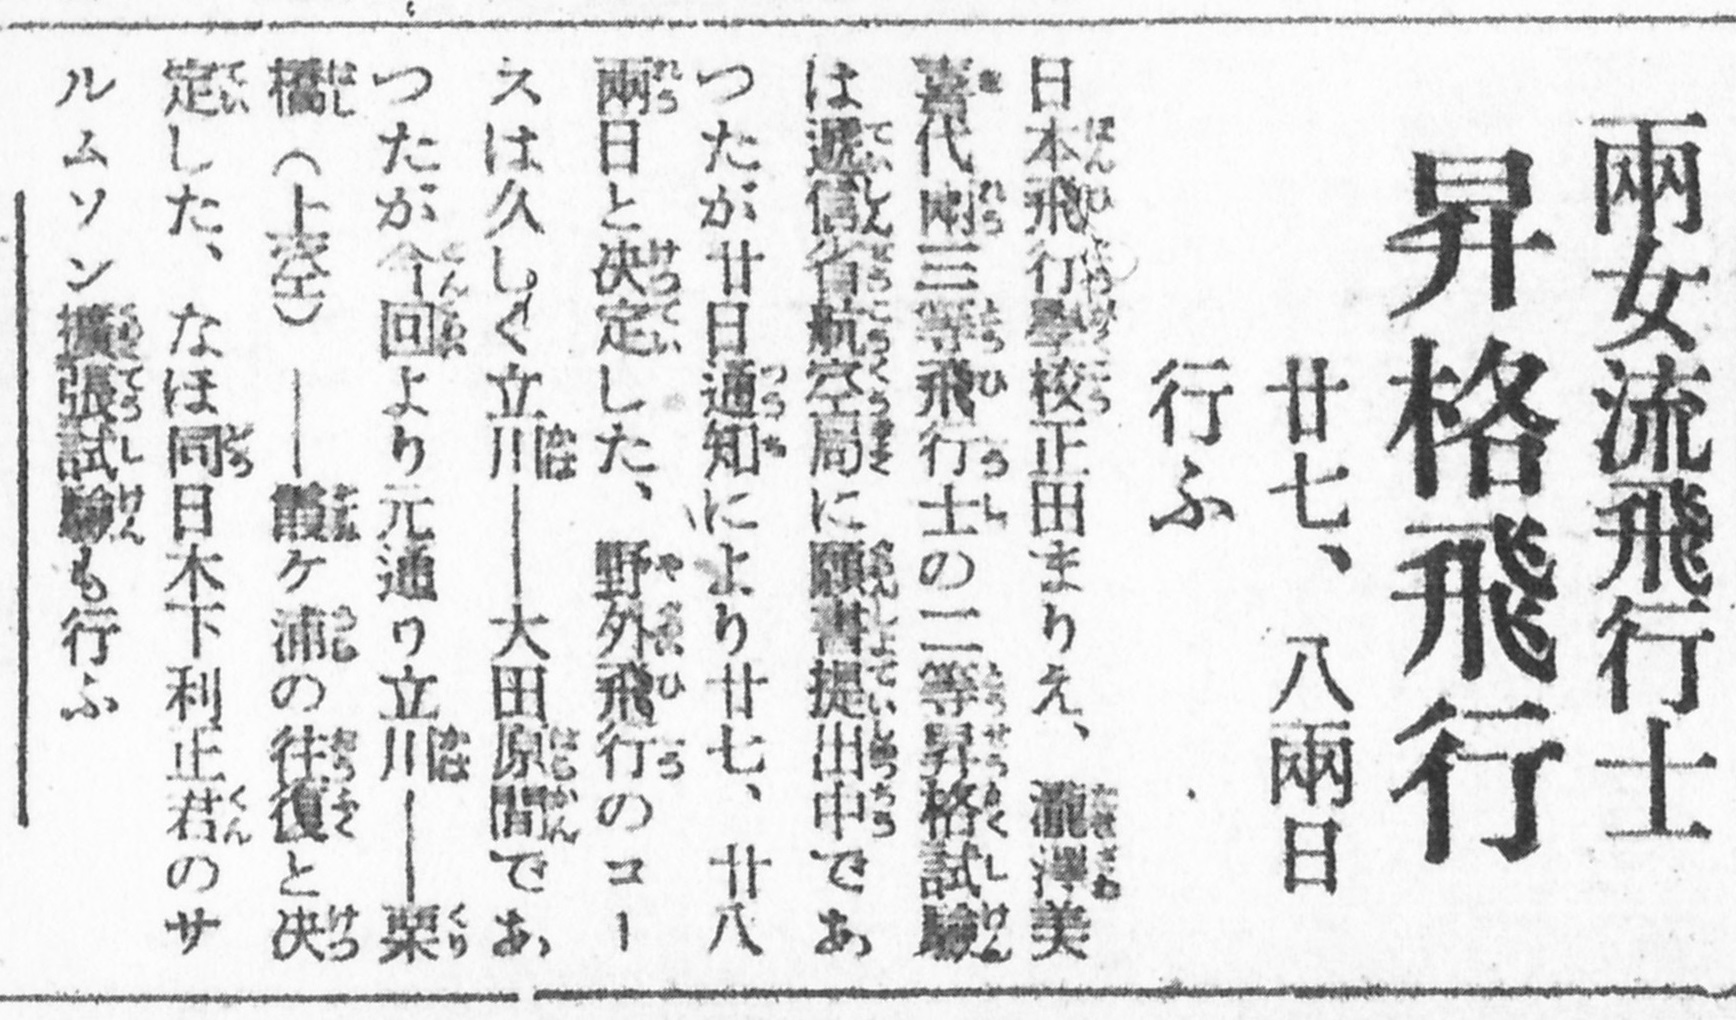 兩女流飛行士
昇格飛行
廿七、八兩日
行ふ
日本飛行學校正田まりえ、瀧澤美
喜代兩三等飛行士の二等昇格試驗
は遞信省航空局に願書提出中であ
つたが廿日通知により廿七、廿八
兩日と決定した、野外飛行のコー
スは久しく立川―大田原間であ
つたが今回より元通り立川―栗
橋（上空）―霞ヶ浦の往復と決
定した、なほ同日木下利正君のサ
ルムソン擴張試驗も行ふ